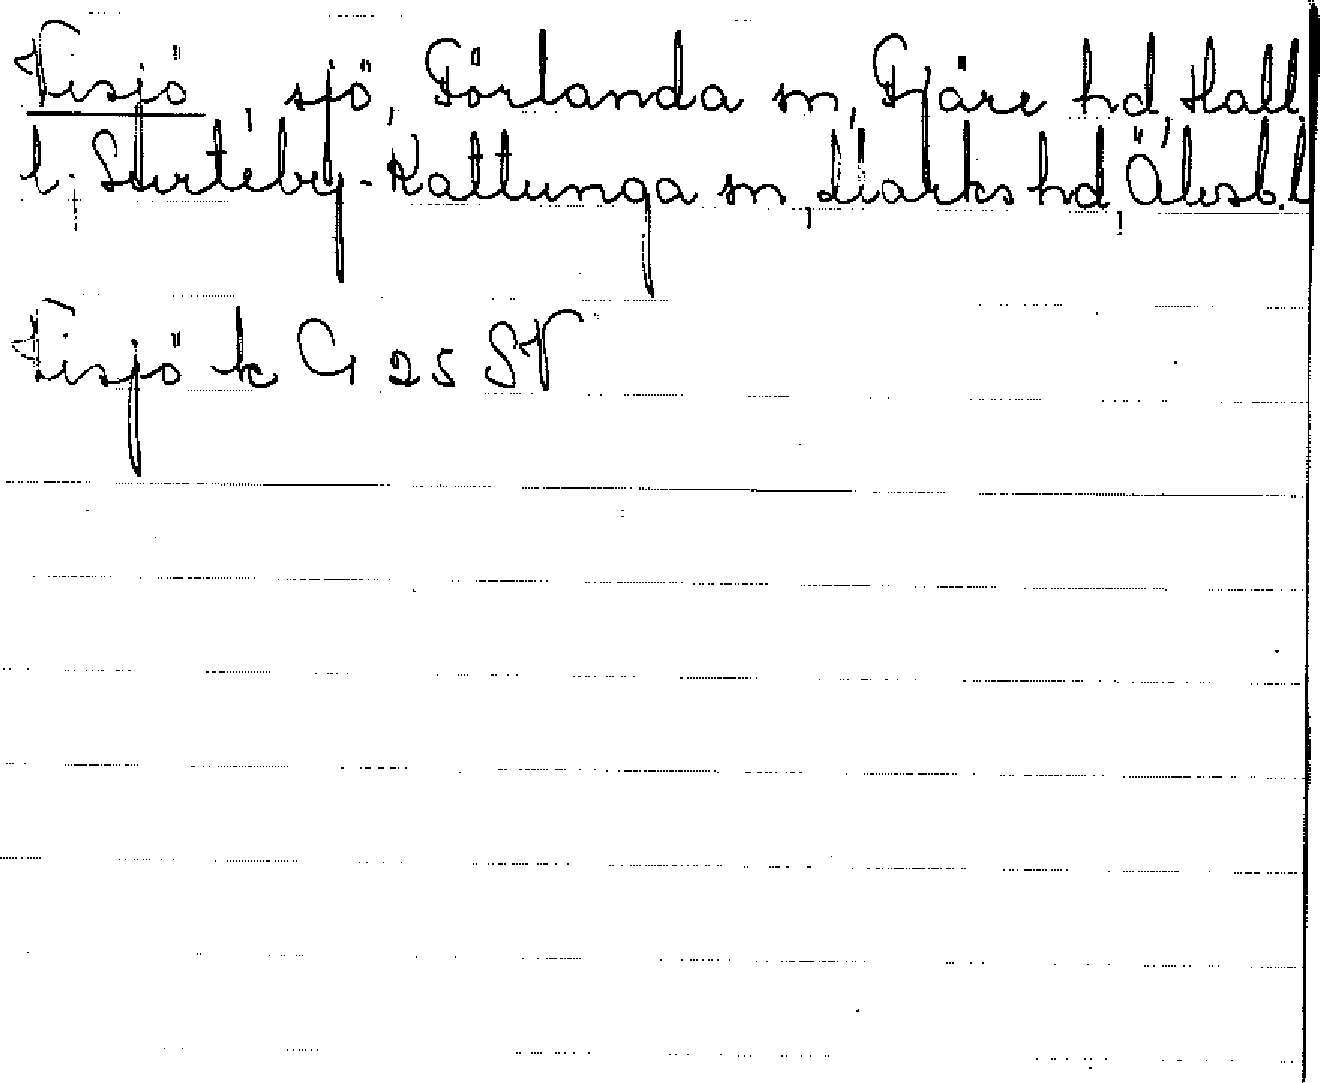 Visjö, sjö, Förlanda sn, Fjäre hd, Hall.
l. Surteby-Kattunga sn, Marks hd, Älvsb. l
Visjö k G 25 SV